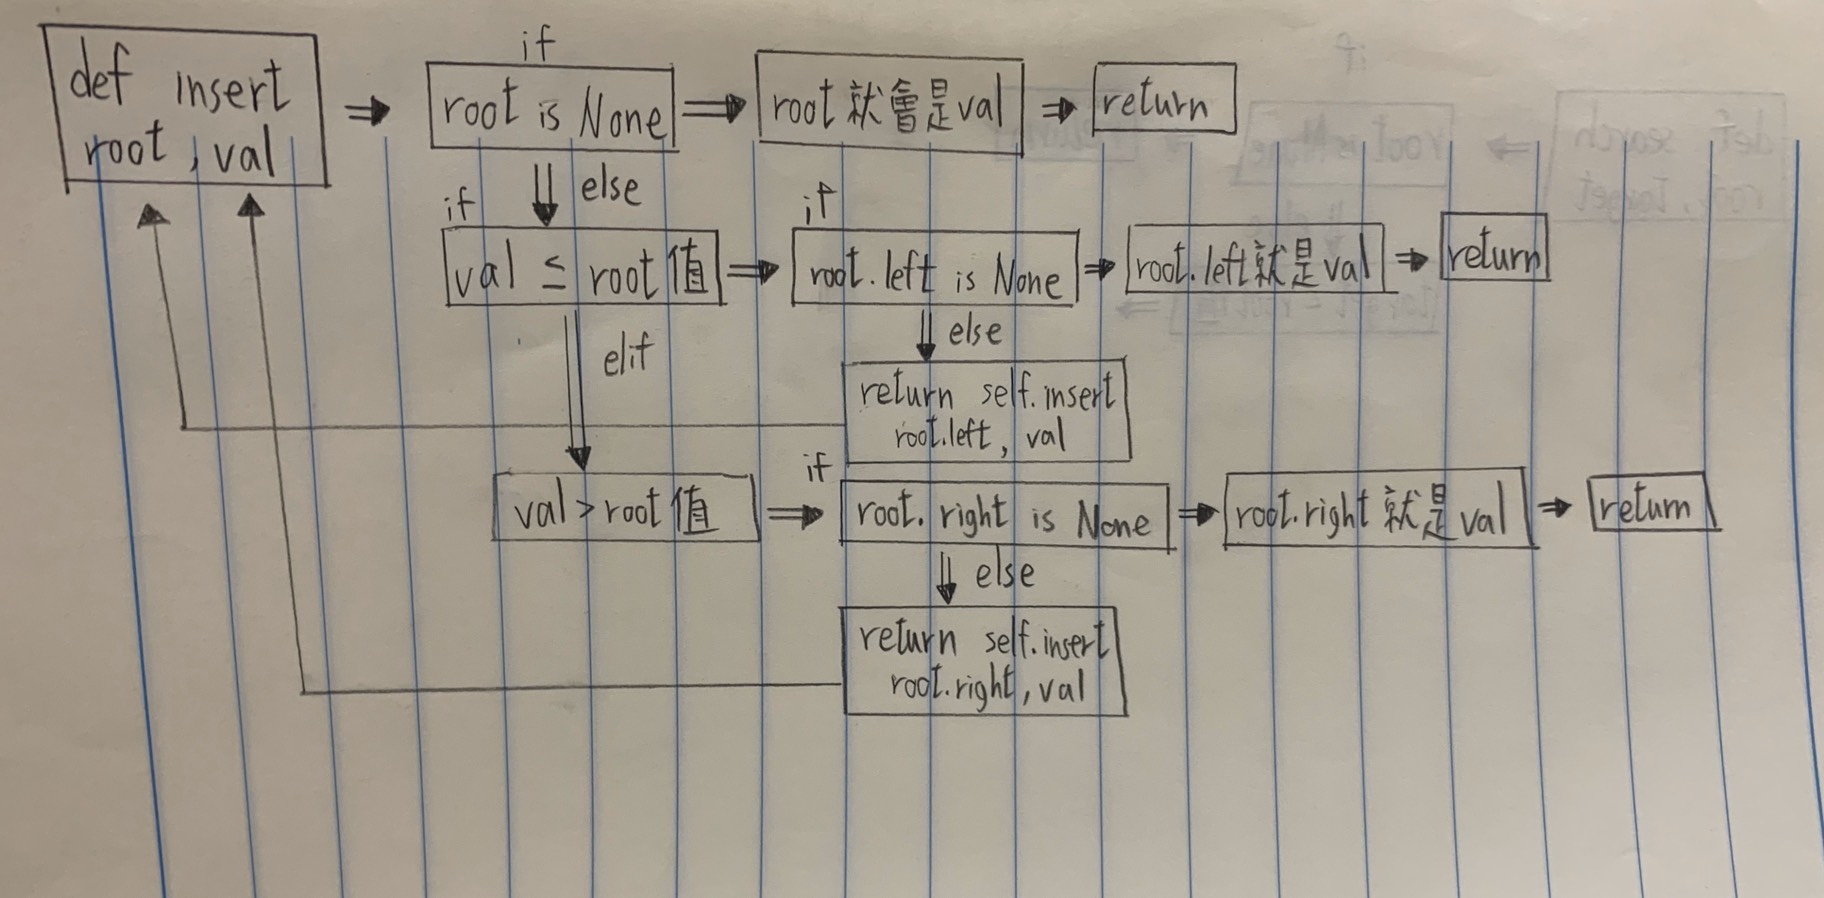 def insert
root, val
if
root is None
root 就會是 val
return
else
if
val ≤ root 值
if
root.left is None
root.left 就是 val
return
else
elif
return self.insert
root.left, val
val > root 值
if
root.right is None
root.right 就是 val
return
else
return self.insert
root.right, val